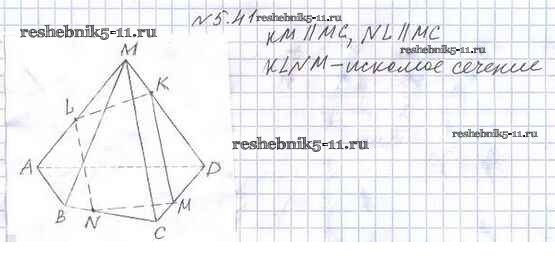 N5.41
reshebnik5-11.ru
reshebnik5-11.ru
KM || MC, NL || MC
KLNM - искомое сечение
M
K
L
reshebnik5-11.ru
reshebnik5-11.ru
A
D
B
N
M
C
reshebnik5-11.ru